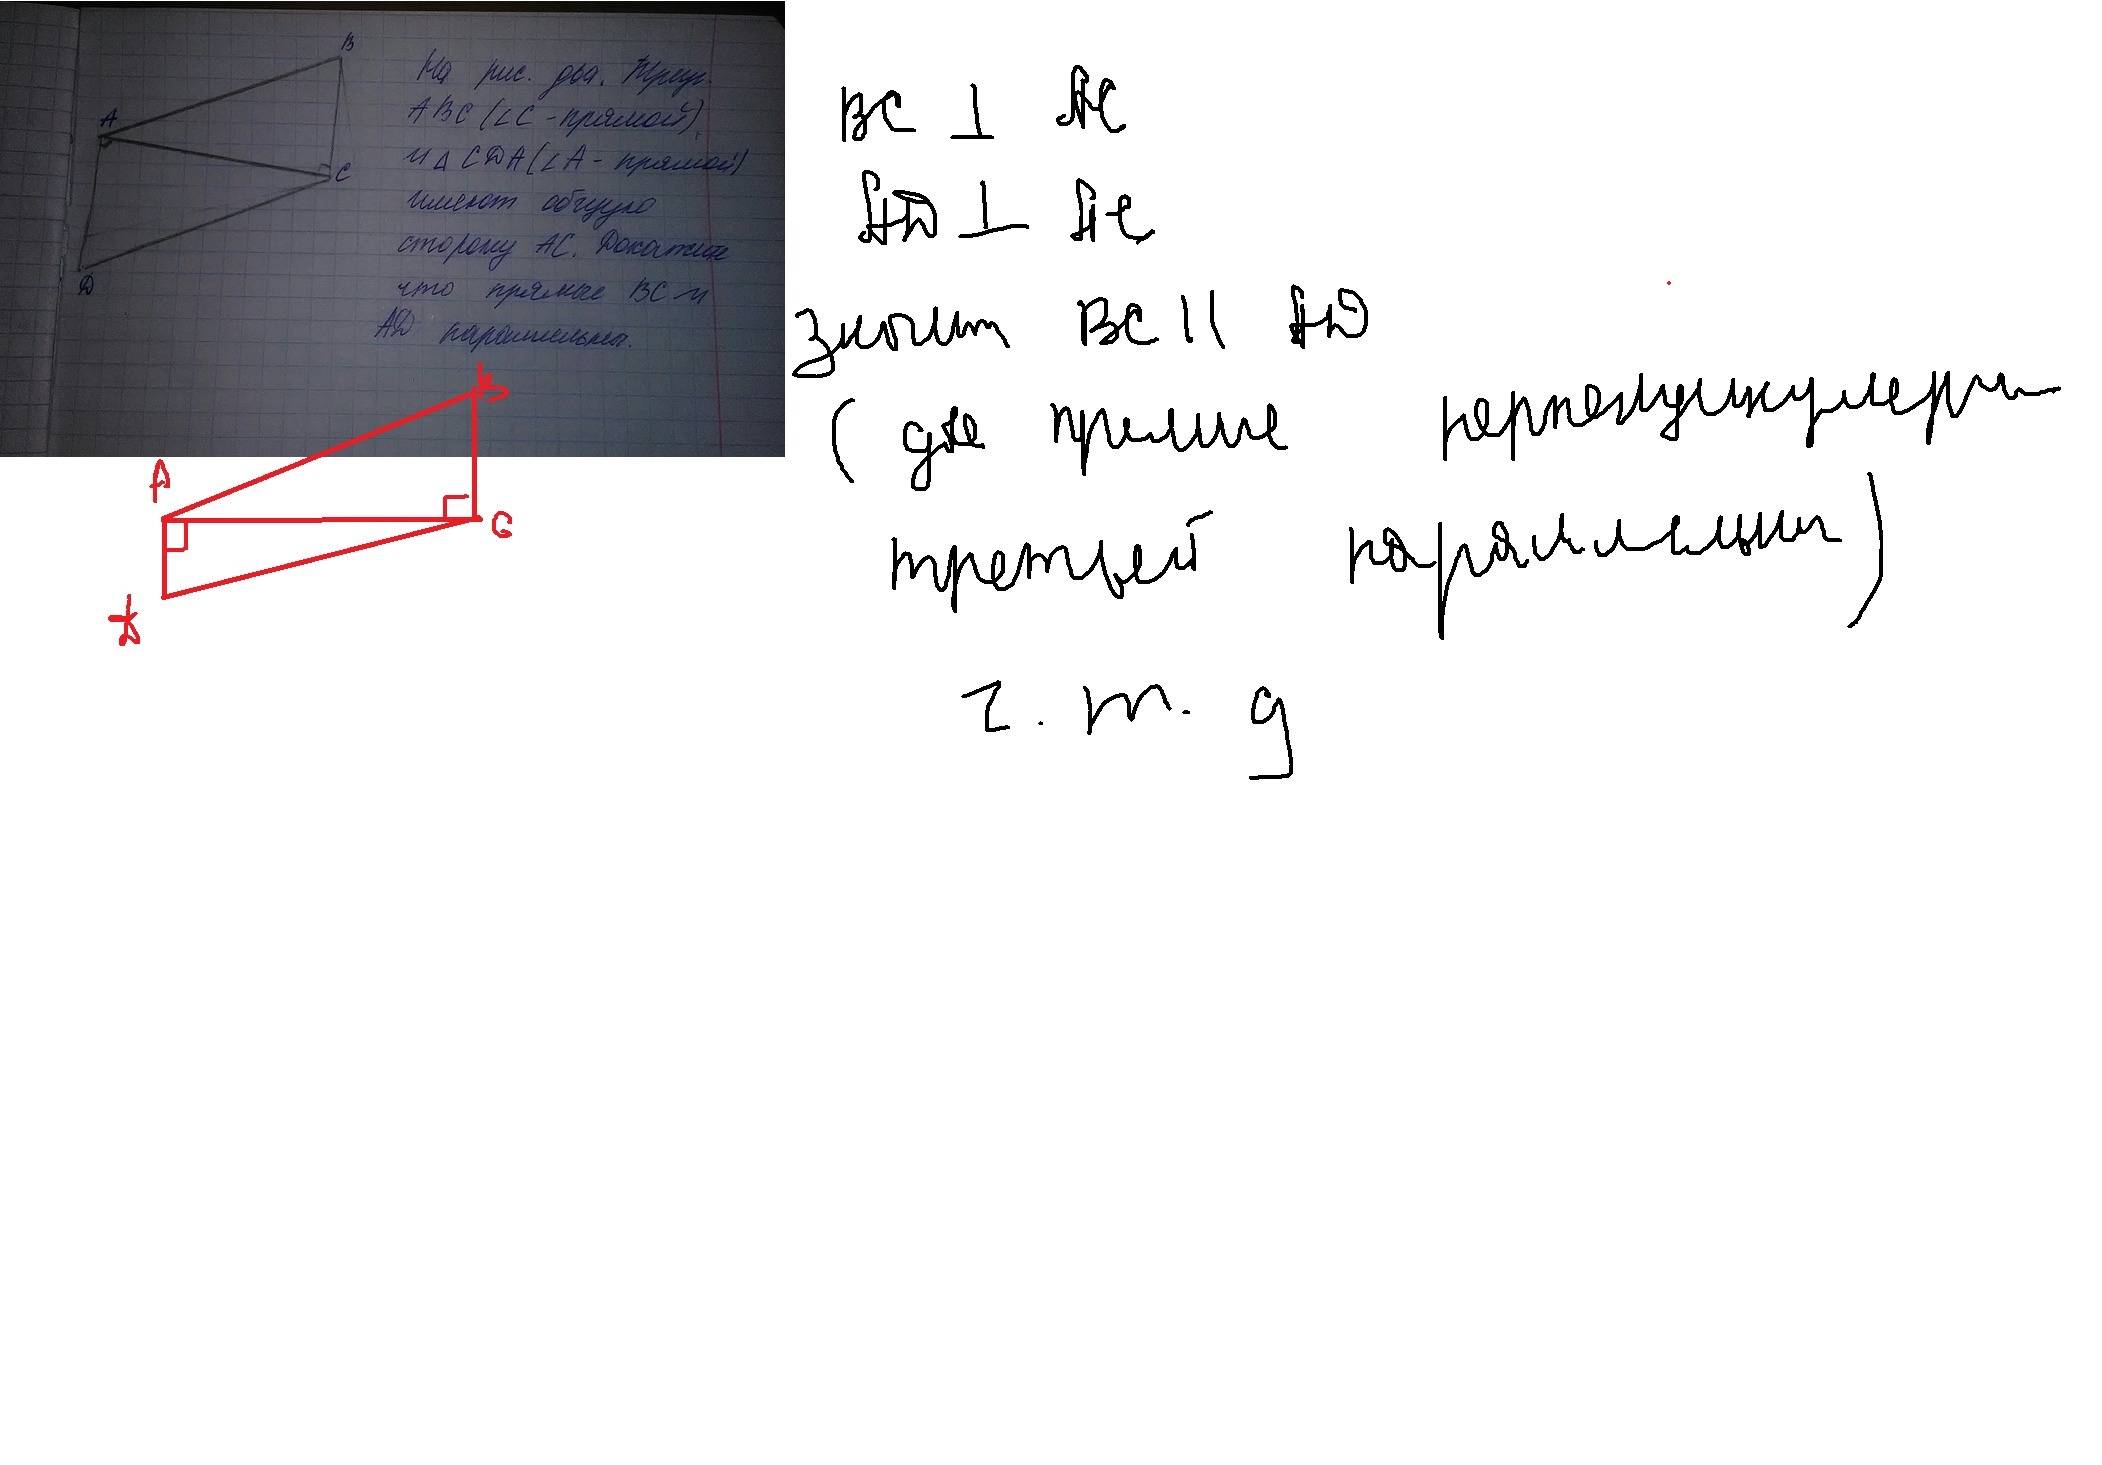 B
A
C
D
На рис. два. Треуг.
ABC (∠C - прямой),
и △ CDA (∠A - прямой)
имеют общую
сторону AC. Докажите
что прямые BC и
AD параллельны.
B
A
C
D
BC ⊥ AC
AD ⊥ AC
значит BC || AD
(две прямые перпендикулярны
третьей параллельны)
ч. т. д